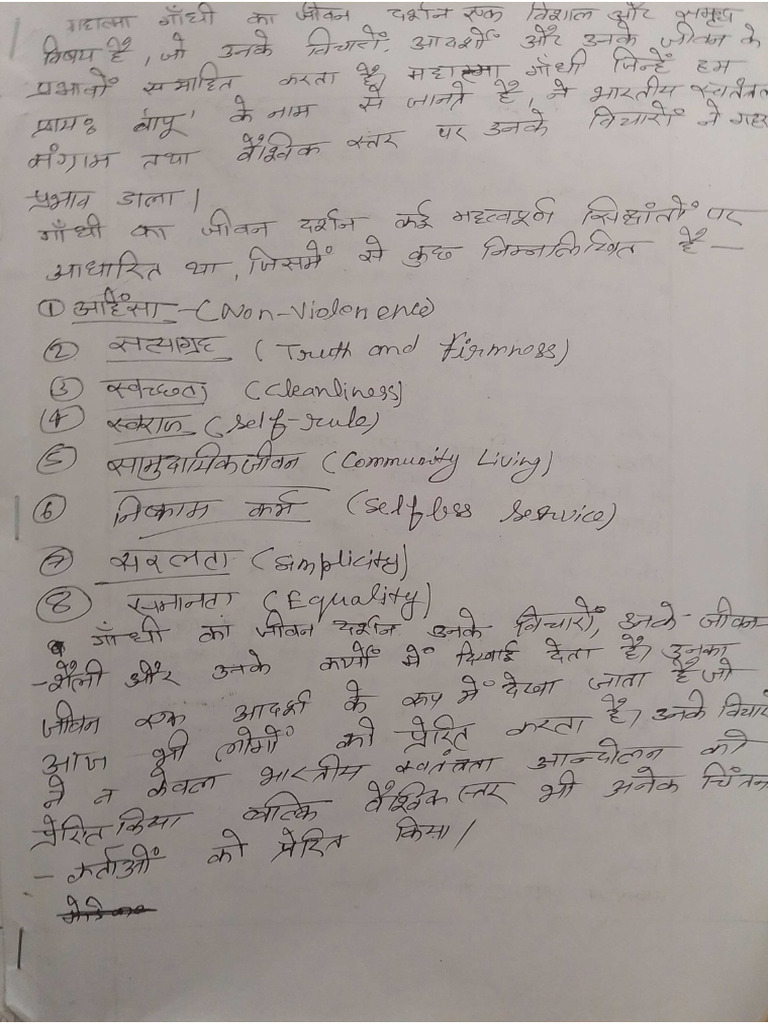 महात्मा गाँधी का जीवन दर्शन एक विशाल और समृद्ध
विषय है, जो उनके विचारों, आदर्शों और उनके जीवन के
प्रभावों समाहित करता है। महात्मा गाँधी जिन्हें हम
प्रायः बापू' के नाम से जानते है, ने भारतीय स्वतंत्रता
संग्राम तथा वैश्विक स्तर पर उनके विचारों ने गहरा
प्रभाव डाला।
गाँधी का जीवन दर्शन कई महत्वपूर्ण सिद्धांतों पर
आधारित था, जिसमें से कुछ निम्नलिखित है –
① अहिंसा - (Non-Violenence)
② सत्याग्रह (Truth and Firmness)
③ स्वच्छता (Cleanliness)
④ स्वराज (Self-rule)
⑤ सामुदायिक जीवन (Community Living)
⑥ निष्काम कर्म (Selfless Service)
⑦ सरलता (Simplicity)
⑧ समानता (Equality)
गाँधी का जीवन दर्शन उनके विचारों, उनके जीवन-
-शैली और उनके कर्मों में दिखाई देता है। उनका
जीवन एक आदर्श के रूप में देखा जाता है जो
आज भी लोगों को प्रेरित करता है। उनके विचारों
ने न केवल भारतीय स्वतंत्रता आन्दोलन को
प्रेरित किया बल्कि वैश्विक स्तर भी अनेक चिंतन
- कर्ताओं को प्रेरित किया।